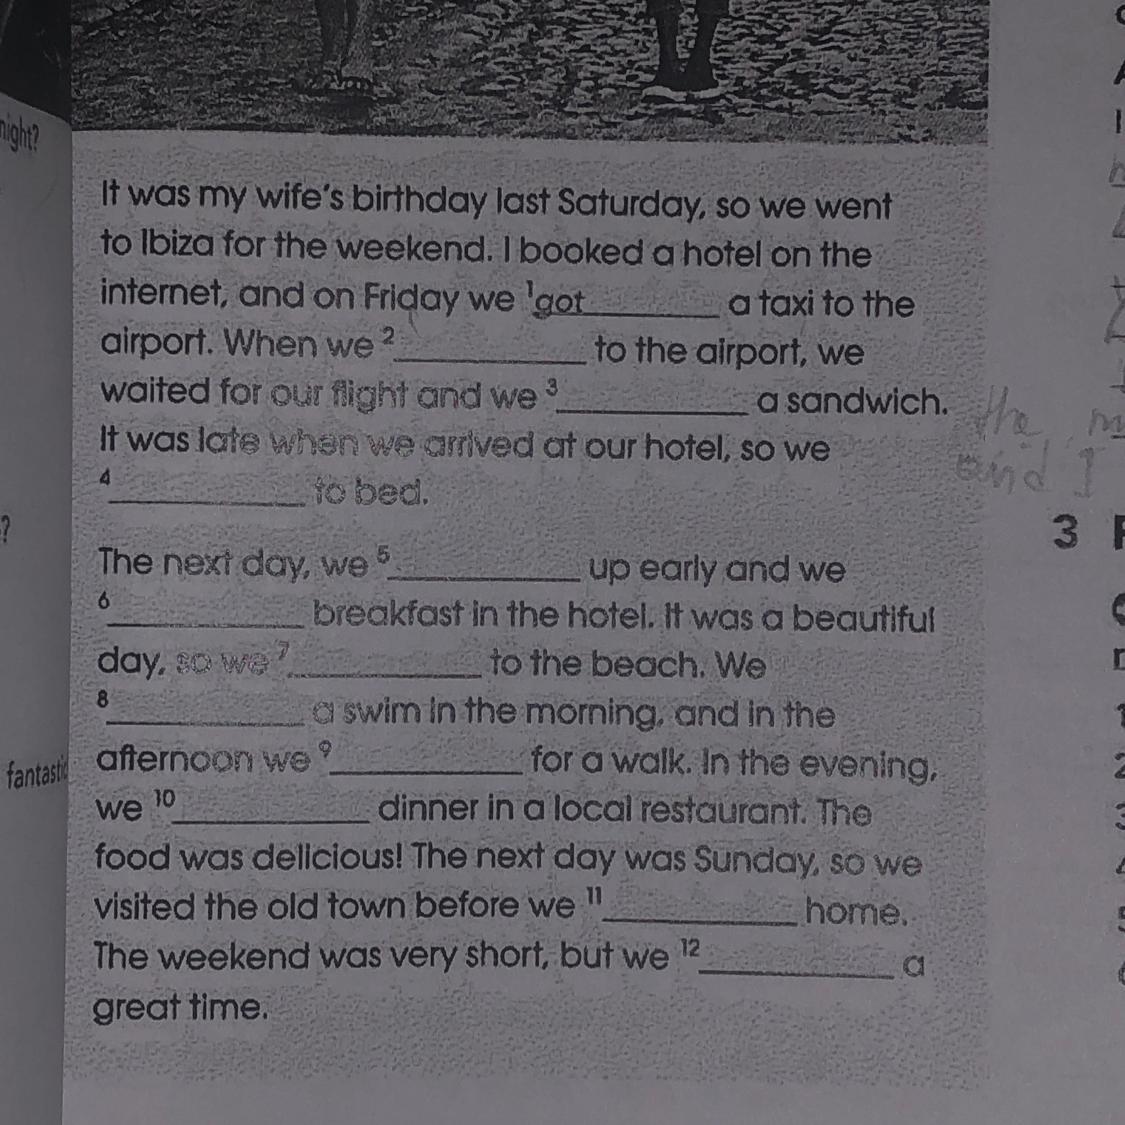 night?
It was my wife's birthday last Saturday, so we went
to Ibiza for the weekend. I booked a hotel on the
internet, and on Friday we 1 got________ a taxi to the
airport. When we 2 ____________ to the airport, we
waited for our flight and we 3 ____________ a sandwich.
It was late when we arrived at our hotel, so we
4 ____________ to bed.
The next day, we 5 ____________ up early and we
6 ____________ breakfast in the hotel. It was a beautiful
day, so we 7 ____________ to the beach. We
8 ____________ a swim in the morning, and in the
afternoon we 9 ____________ for a walk. In the evening,
we 10 ____________ dinner in a local restaurant. The
food was delicious! The next day was Sunday, so we
visited the old town before we 11 ____________ home.
The weekend was very short, but we 12 ____________ a
great time.
?
the
and I
3